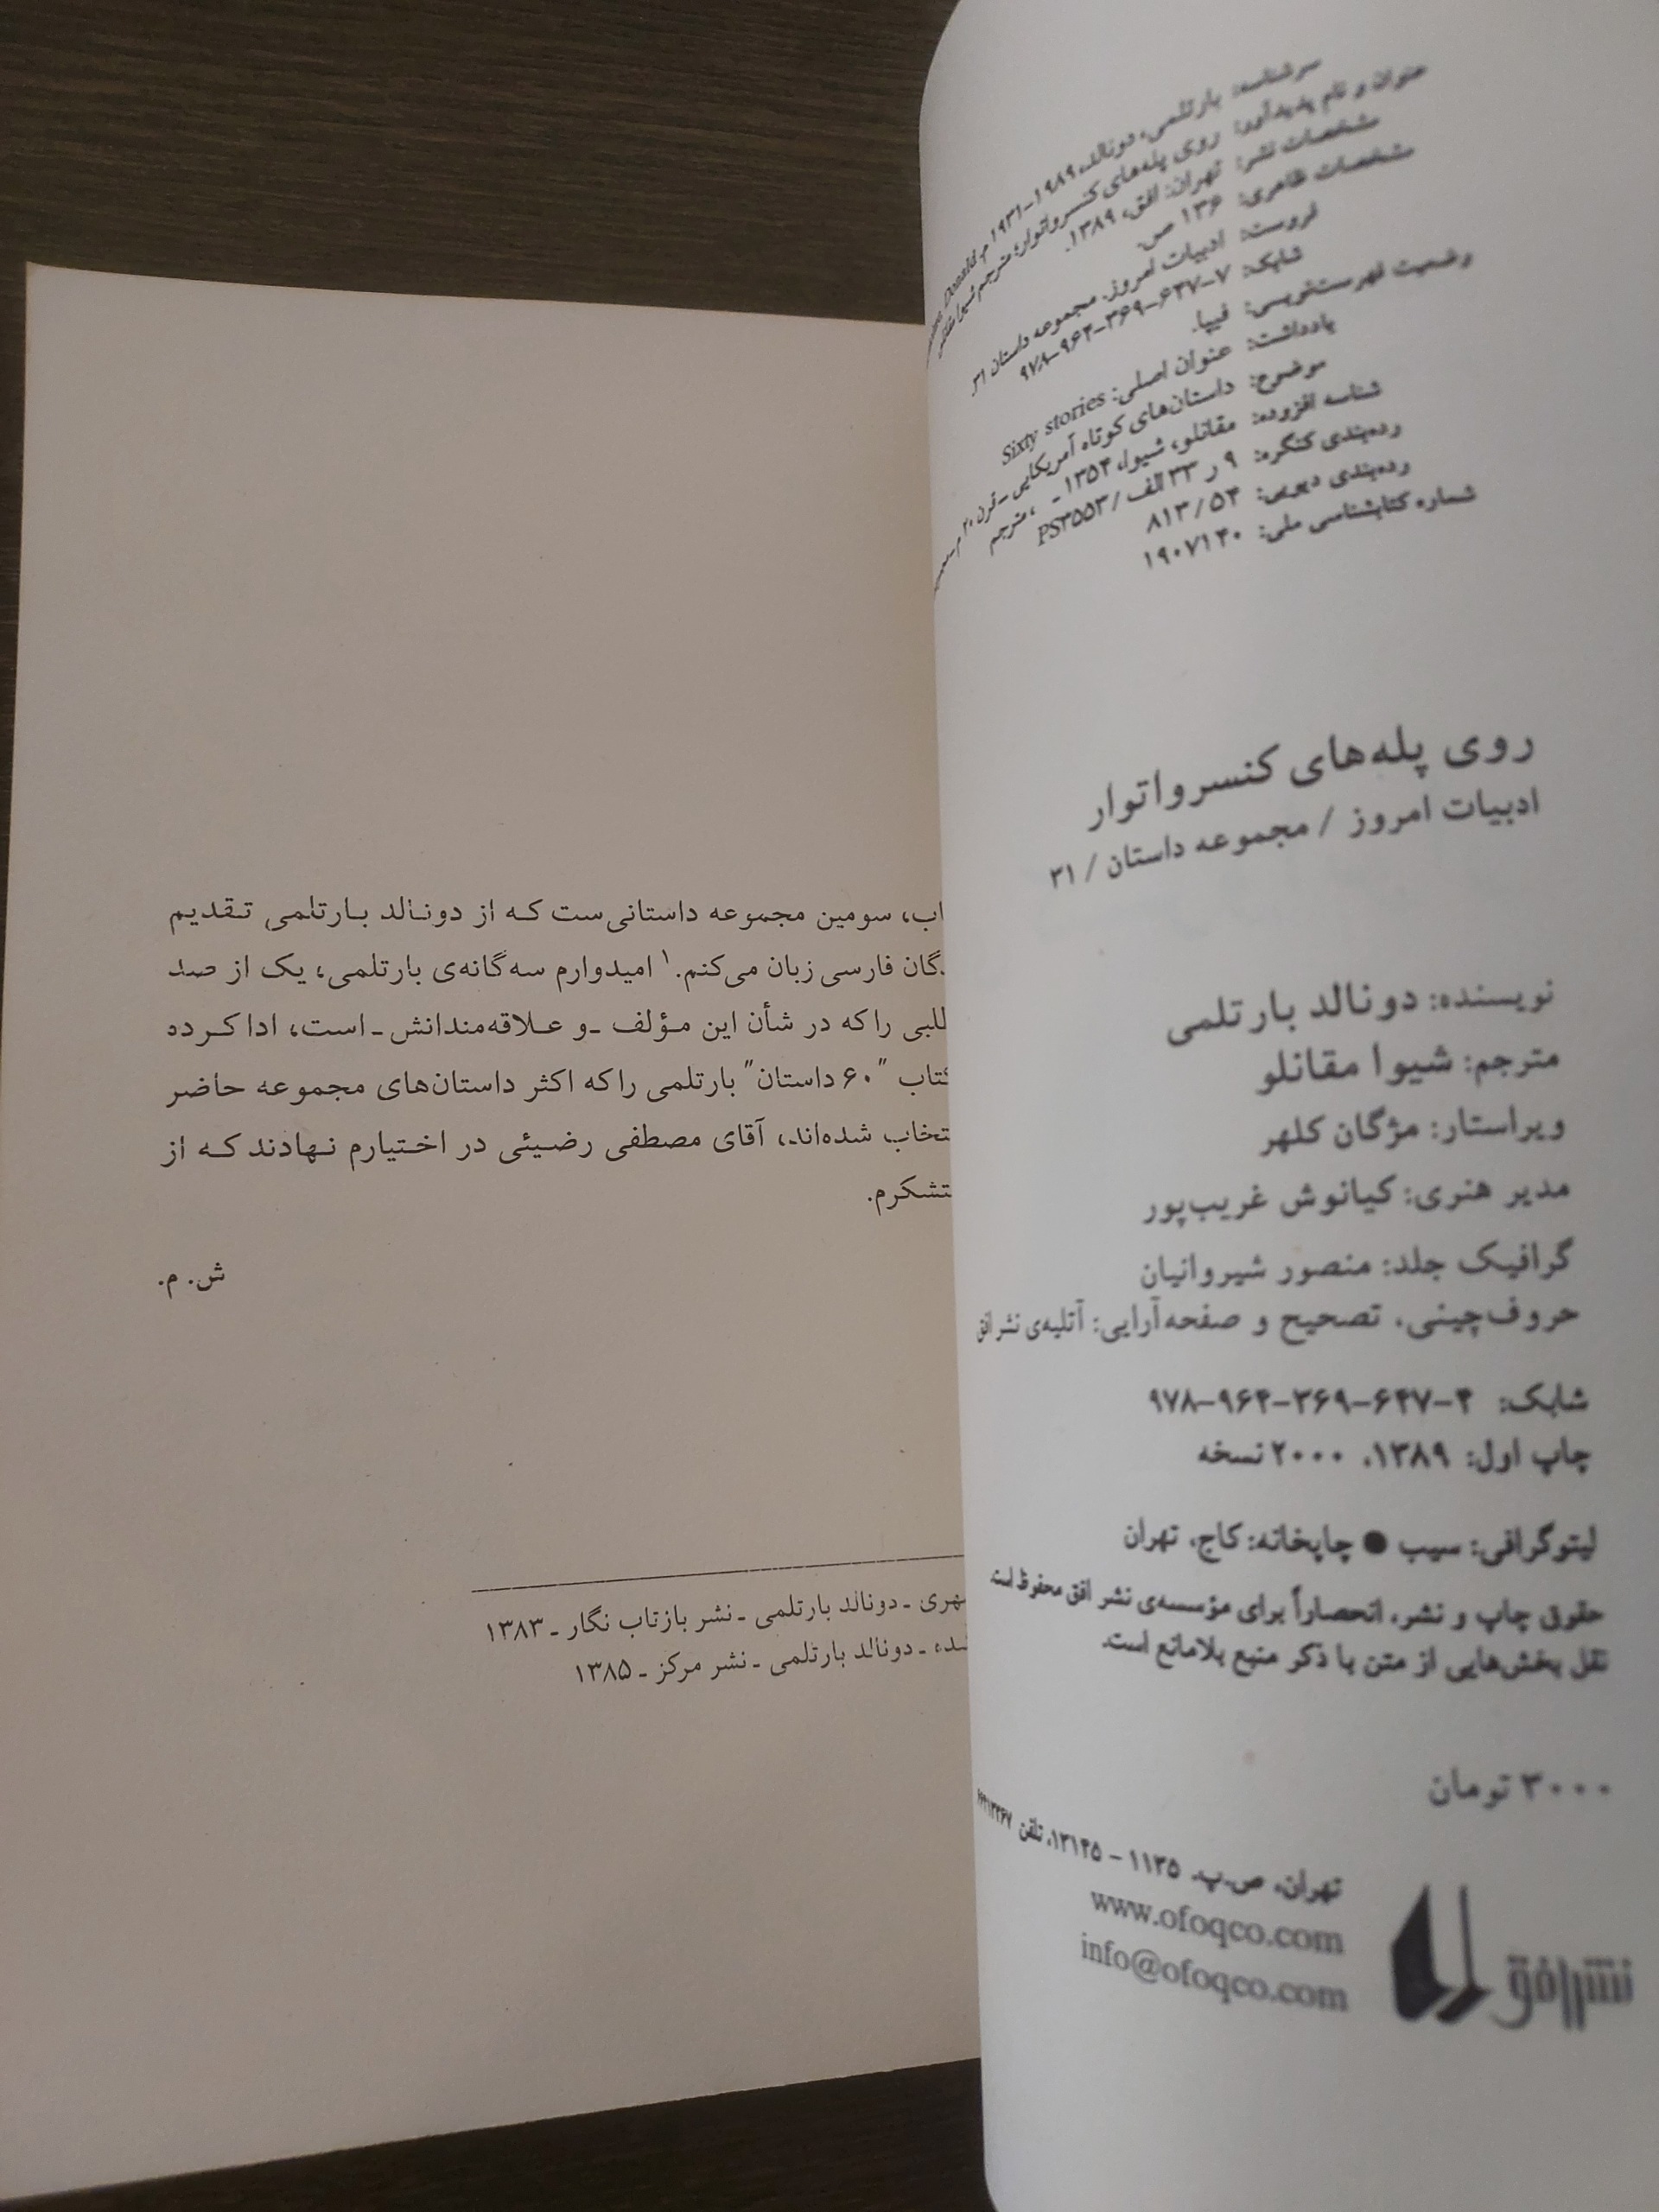 سرشناسه: بارتلمی، دونالد، ۱۹۸۹-۱۹۳۱ م. Donald
عنوان و نام پدیدآور: روی پله‌های کنسرواتوار؛ مترجم شیوا مقانلو
مشخصات نشر: تهران: افق، ۱۳۸۹.
مشخصات ظاهری: ۱۳۶ ص.
فروست: ادبیات امروز. مجموعه داستان ۳۱
شابک: ۹۷۸-۹۶۴-۳۶۹-۶۴۷-۷
وضعیت فهرست‌نویسی: فیپا.
یادداشت: عنوان اصلی: Sixty stories
موضوع: داستان‌های کوتاه آمریکایی - قرن ۲۰ م.
شناسه افزوده: مقانلو، شیوا، ۱۳۵۴ - ، مترجم
رده‌بندی کنگره: ۹ ر ۳۳ الف / PS۳۵۵۳
رده‌بندی دیویی: ۸۱۳/۵۴
شماره کتابشناسی ملی: ۱۹۰۷۱۴۰
روی پله‌های کنسرواتوار
ادبیات امروز / مجموعه داستان / ۳۱
نویسنده: دونالد بارتلمی
مترجم: شیوا مقانلو
ویراستار: مژگان کلهر
مدیر هنری: کیانوش غریب‌پور
گرافیک جلد: منصور شیروانیان
حروف‌چینی، تصحیح و صفحه‌آرایی: آتلیه‌ی نشر افق
شابک: ۹۷۸-۹۶۴-۳۶۹-۶۴۷-۴
چاپ اول: ۱۳۸۹، ۲۰۰۰ نسخه
لیتوگرافی: سیب ● چاپخانه: کاج، تهران
حقوق چاپ و نشر، انحصاراً برای مؤسسه‌ی نشر افق محفوظ است.
نقل بخش‌هایی از متن با ذکر منبع بلامانع است.
۳۰۰۰ تومان
تهران، ص.پ. ۱۱۳۵ - ۱۳۱۴۵، تلفن
www.ofoqco.com
info@ofoqco.com
نشر افق
سومین مجموعه داستانی‌ست که از دونالد بارتلمی تقدیم
فارسی زبان می‌کنم.۱ امیدوارم سه‌گانه‌ی بارتلمی، یک از صد
را که در شأن این مؤلف ـ و علاقه‌مندانش ـ است، ادا کرده
"۶۰ داستان" بارتلمی را که اکثر داستان‌های مجموعه حاضر
شده‌اند، آقای مصطفی رضیئی در اختیارم نهادند که از
متشکرم.
ش. م.
ـ دونالد بارتلمی ـ نشر بازتاب نگار ـ ۱۳۸۳
ـ دونالد بارتلمی ـ نشر مرکز ـ ۱۳۸۵